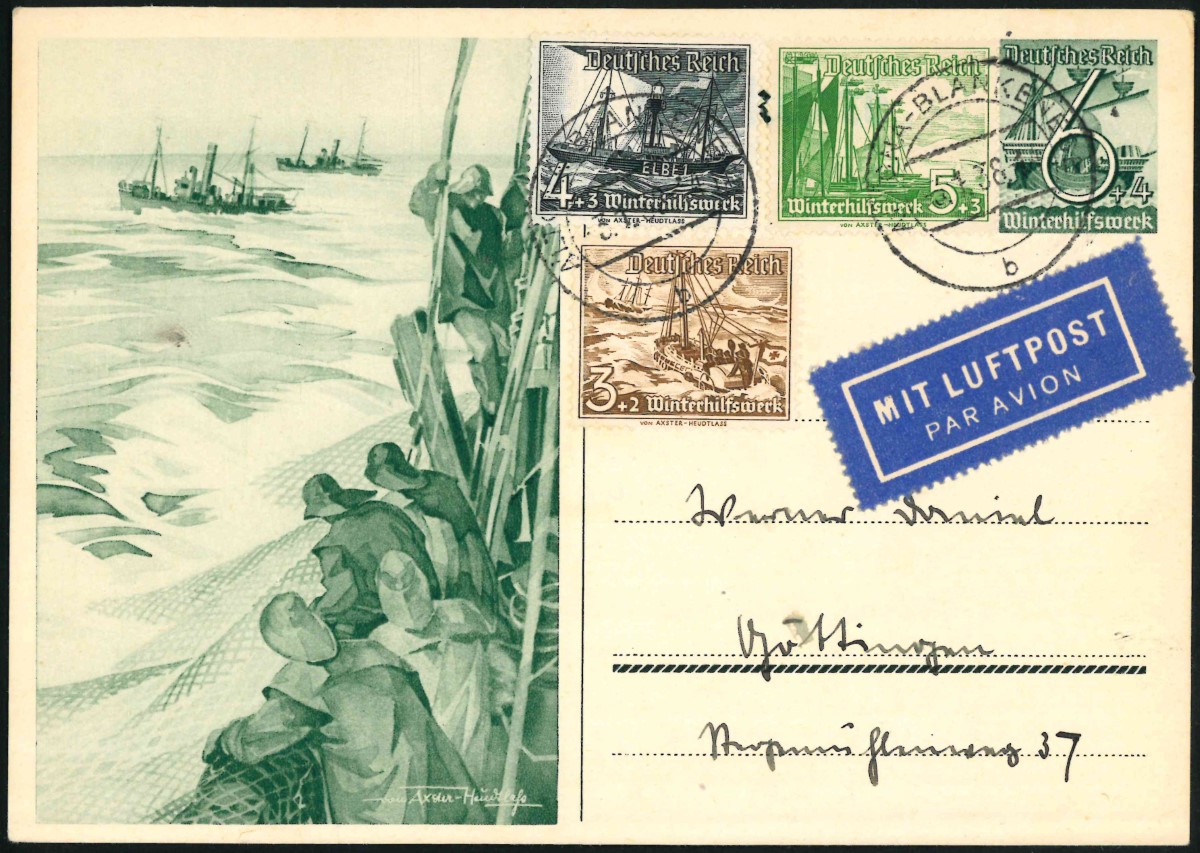 Deutsches Reich
ELBE 1
4+3 Winterhilfswerk
VON AXSTER-HEUDTLASS
Deutsches Reich
5+3
Winterhilfswerk
VON AXSTER-HEUDTLASS
Deutsches Reich
6+4
Winterhilfswerk
ALTONA-BLANKENE
b
Deutsches Reich
3+2 Winterhilfswerk
VON AXSTER-HEUDTLASS
MIT LUFTPOST
PAR AVION
Werner Daniel
Göttingen
37
von Axster-Heudtlaß